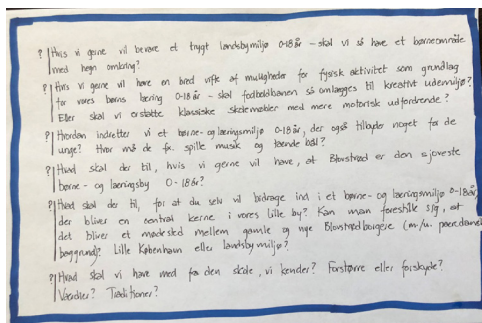 ? Hvis vi gerne vil bevare et trygt landsbymiljø 0-18 år - skal vi så have et børneområde
med hegn omkring?
? Hvis vi gerne vil have en bred vifte af muligheder for fysisk aktivitet som grundlag
for vores børns læring 0-18 år - skal fodboldbanen så omlægges til kreativt udemiljø?
Eller skal vi erstatte klassiske skolemøbler med mere motorisk udfordrende?
? Hvordan indretter vi et børne- og læringsmiljø 0-18 år, der også tilbyder noget for de
unge? Hvor må de fx. spille musik og tænde bål?
? Hvad skal der til, hvis vi gerne vil have, at Blovstrød er den sjoveste
børne- og læringsby 0-18 år?
? Hvad skal der til, for at du selv vil bidrage ind i et børne- og læringsmiljø 0-18 år
der bliver en central kerne i vores lille by? Kan man forestille sig, at
det bliver et mødested mellem gamle og nye Blovstrødborgere (m/u.
baggrund)? Lille København eller landsbymiljø?
? Hvad skal vi have med fra den skole, vi kender? Forstørre eller forskyde?
Værdier? Traditioner?